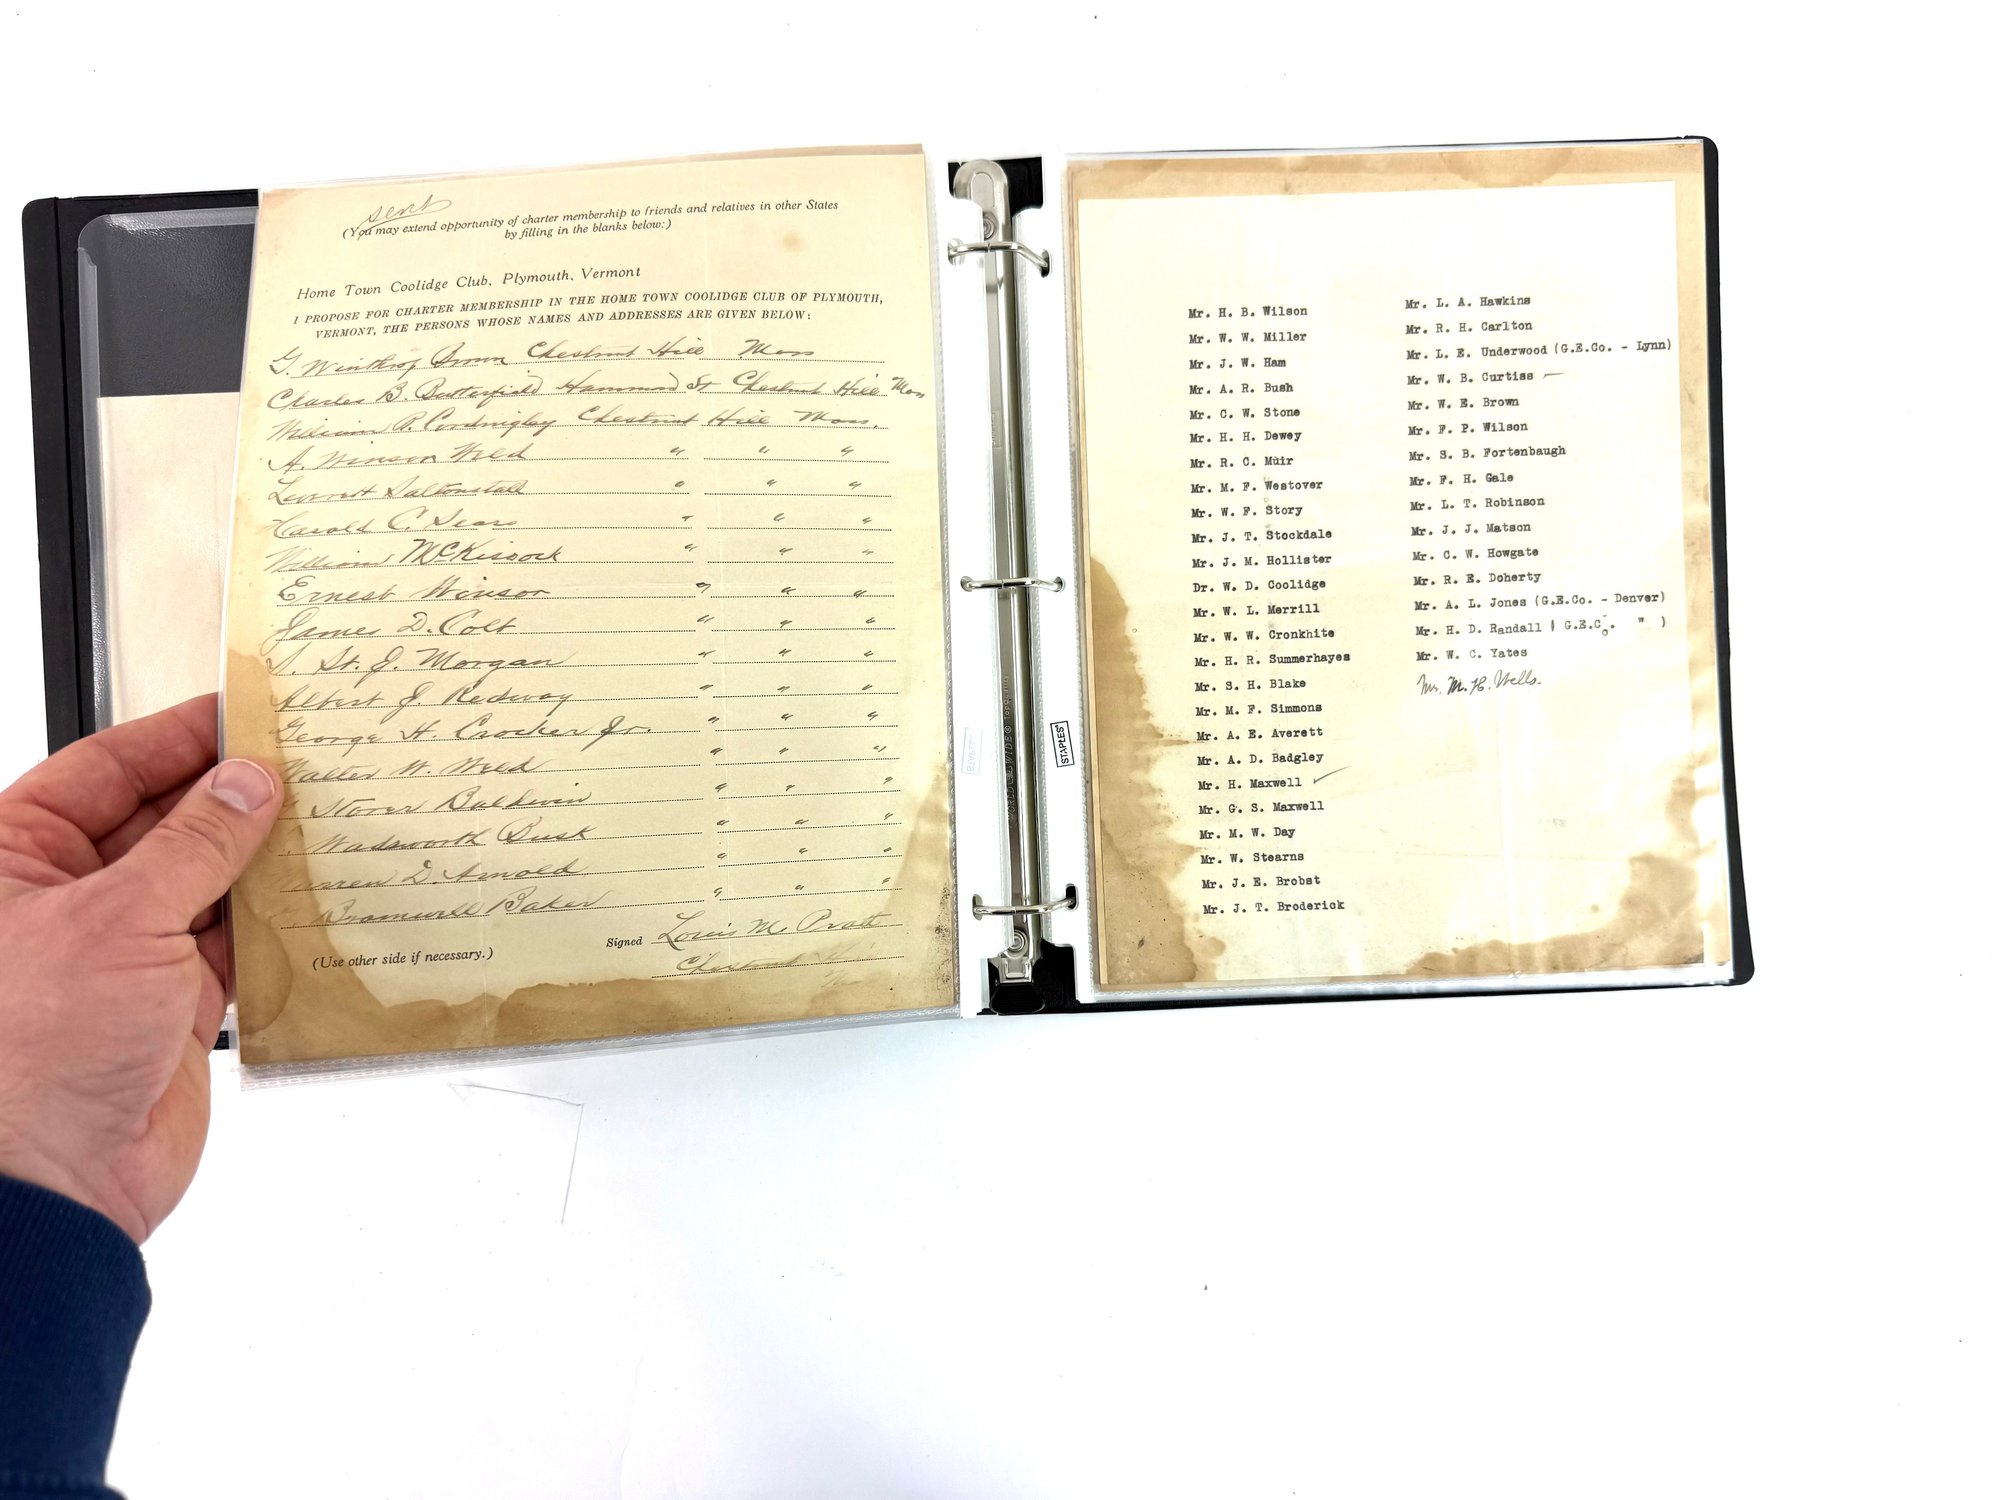 sent
(You may extend opportunity of charter membership to friends and relatives in other States
by filling in the blanks below:)
Home Town Coolidge Club, Plymouth, Vermont
I PROPOSE FOR CHARTER MEMBERSHIP IN THE HOME TOWN COOLIDGE CLUB OF PLYMOUTH,
VERMONT, THE PERSONS WHOSE NAMES AND ADDRESSES ARE GIVEN BELOW:
G. Winthrop Brown Chestnut Hill Mass
Charles B. Butterfield Hammond St Chestnut Hill Mass
William P. Cordingley Chestnut Hill Mass.
A. Winsor Weld " " "
Leverett Saltonstall " " "
Harold C. Sears " " "
William McKissock " " "
Ernest Winsor " " "
James D. Colt " " "
St. J. Morgan " " "
Albert J. Redway " " "
George H. Crocker Jr. " " "
Walter W. Weld " " "
Storer Baldwin " " "
Wadsworth Busk " " "
Warren D. Arnold " " "
Bramwell Baker " " "
Signed Louis M. Pratt
(Use other side if necessary.)
Chestnut Hill
STAPLES
Mr. H. B. Wilson
Mr. W. W. Miller
Mr. J. W. Ham
Mr. A. R. Bush
Mr. C. W. Stone
Mr. H. H. Dewey
Mr. R. C. Muir
Mr. M. F. Westover
Mr. W. F. Story
Mr. J. T. Stockdale
Mr. J. M. Hollister
Dr. W. D. Coolidge
Mr. W. L. Merrill
Mr. W. W. Cronkhite
Mr. H. R. Summerhayes
Mr. S. H. Blake
Mr. M. F. Simmons
Mr. A. E. Averett
Mr. A. D. Badgley
Mr. H. Maxwell
Mr. G. S. Maxwell
Mr. M. W. Day
Mr. W. Stearns
Mr. J. E. Brobst
Mr. J. T. Broderick
Mr. L. A. Hawkins
Mr. R. H. Carlton
Mr. L. E. Underwood (G.E.Co. - Lynn)
Mr. W. B. Curtiss
Mr. W. E. Brown
Mr. F. P. Wilson
Mr. S. B. Fortenbaugh
Mr. F. H. Gale
Mr. L. T. Robinson
Mr. J. J. Matson
Mr. C. W. Howgate
Mr. R. E. Doherty
Mr. A. L. Jones (G.E.Co. - Denver)
Mr. H. D. Randall ( G.E.Co. " )
Mr. W. C. Yates
Mr. M. H. Wells.